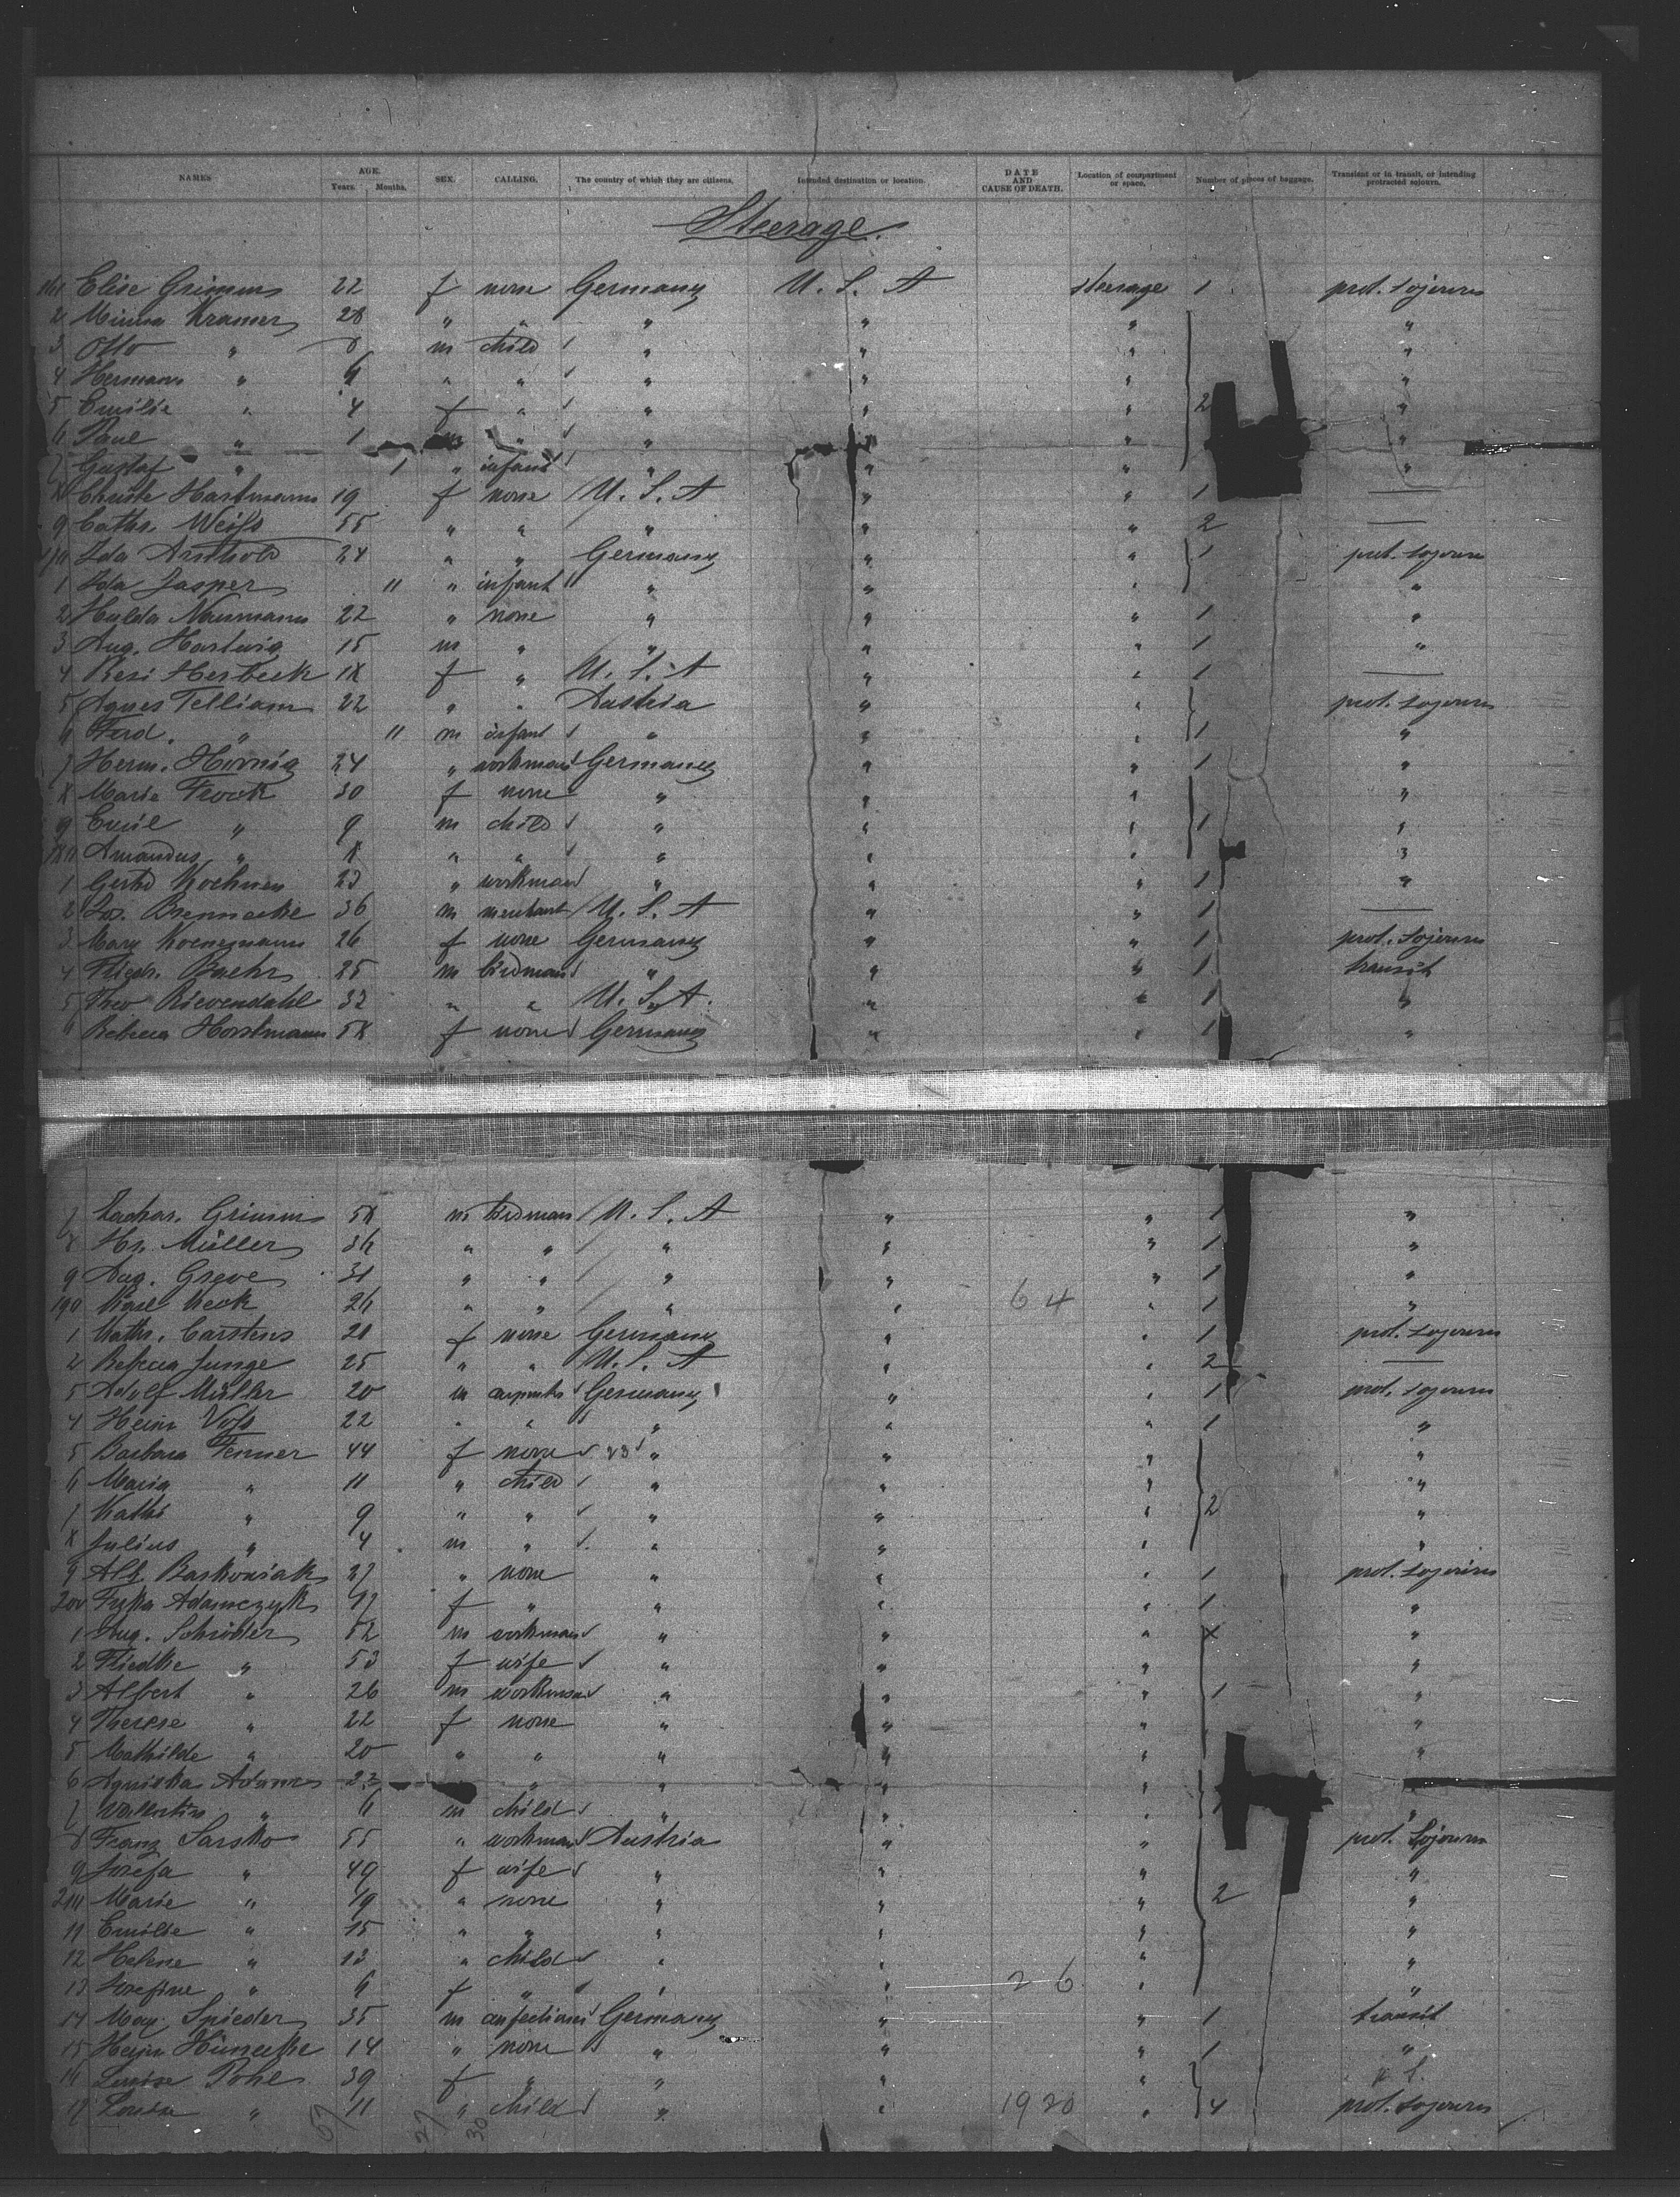 NAMES AGE. Years. Months. SEX. CALLING. The country of which they are citizens. Intended destination or location. DATE AND CAUSE OF DEATH. Location of compartment or space. Number of pieces of baggage. Transient or in transit, or intending protracted sojourn.
Steerage.
161 Elise Grimm 22 f none Germany U. S. A steerage 1 prot. sojourn
2 Minna Kramer 28 " " " " " "
3 Otto " 8 m child " " " "
4 Herman " 6 " " " " " "
5 Emilie " 4 f " " " " 2 "
6 Paul " 1 m " " " " "
7 Gustaf " 1 " infant " " " "
8 Christe Hartmann 19 f none U. S. A " " 1 —
9 Cathr. Weiss 55 " " " " " 2 —
170 Ida Arnhold 24 " " Germany " " 1 prot. sojourn
1 Ida Jasper 11 " infant " " " "
2 Hulda Naumann 22 " none " " " 1 "
3 Aug. Hartwig 15 m " " " " 1 "
4 Resi Herbeck 18 f " U. S. A " " 1 —
5 Agnes Telliam 22 " " Austria " " prot. sojourn
6 Ferd. " 11 m infant " " " 1 "
7 Herm. Hornig 24 " workman Germany " " 1 "
8 Marie Frock 30 f none " " " "
9 Emil " 9 m child " " " 1 "
180 Amandus " 8 " " " " " "
1 Gerhd Koehnen 23 " workman " " " 1 "
2 Jos. Brennecke 36 m merchant U. S. A " " 1 —
3 Mary Koenemann 26 f none Germany " " 1 prot. sojourn
4 Friedr. Baehr 25 m birdman " " " 1 transit
5 Theo Rievendahl 32 " " U. S. A. " " 1 "
6 Rebecca Horstmann 58 f none Germany " " 1 "
7 Zachar. Grimm 58 m birdman U. S. A " " 1 "
8 Hr. Müller 36 " " " " " 1 "
9 Aug. Greve 31 " " " " " 1 "
190 Karl Keck 26 " " " " 64 " 1 "
1 Kathr. Carstens 20 f none Germany " " 1 prot. sojourn
2 Rebecca Junge 25 " " U. S. A " " 2 —
3 Adolf Müller 20 m carpenter Germany " " 1 prot. sojourn
4 Heinr Voss 22 " " " " " 1 "
5 Barbara Fenner 44 f none " " " "
6 Maria " 11 " child " " " "
7 Kathi " 9 " " " " " 2 "
8 Julius " 4 m " " " " "
9 Alb. Baskoniak 27 " none " " " 1 prot. sojourn
200 Adamczyk f " " " " 1 "
1 Aug. Schröder 52 m workman " " " "
2 Friedke " 53 f wife " " " "
3 Albert " 26 m workman " " " 1 "
4 Therese " 22 f none " " " "
5 Mathilde " 20 " " " " " "
6 Agniska Adams 23 " " " "
7 Vallentin " 6 m child " " " "
8 Franz Sarsko 55 " workman Austria " " prot. Sojourn
9 Josefa " 49 f wife " " " "
210 Marie " 19 " none " " " 2 "
11 Emilie " 15 " " " " " "
12 Helene " 13 " child " " " "
13 Josefine " 6 f " " " 26 " "
14 Max Spieder 35 m confectioner Germany " " 1 transit
15 Heinr Hünecke 14 " none " " " 1 "
16 Louise Pohl 39 f " " " "
17 Louisa " 11 " child " " 1920 " 4 prot. sojourn
57 27 30